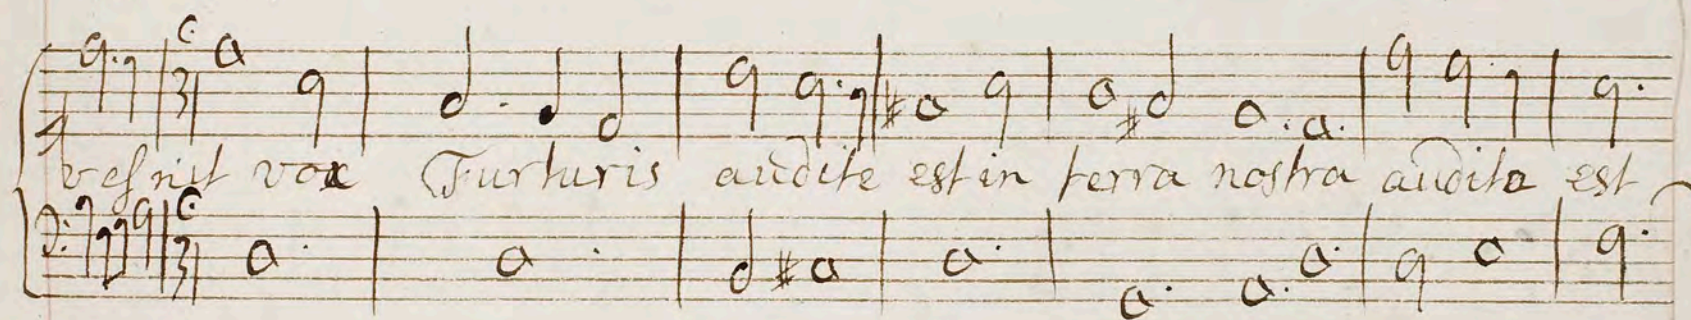 vesnit vox Turturis audite est in terra nostra audite est